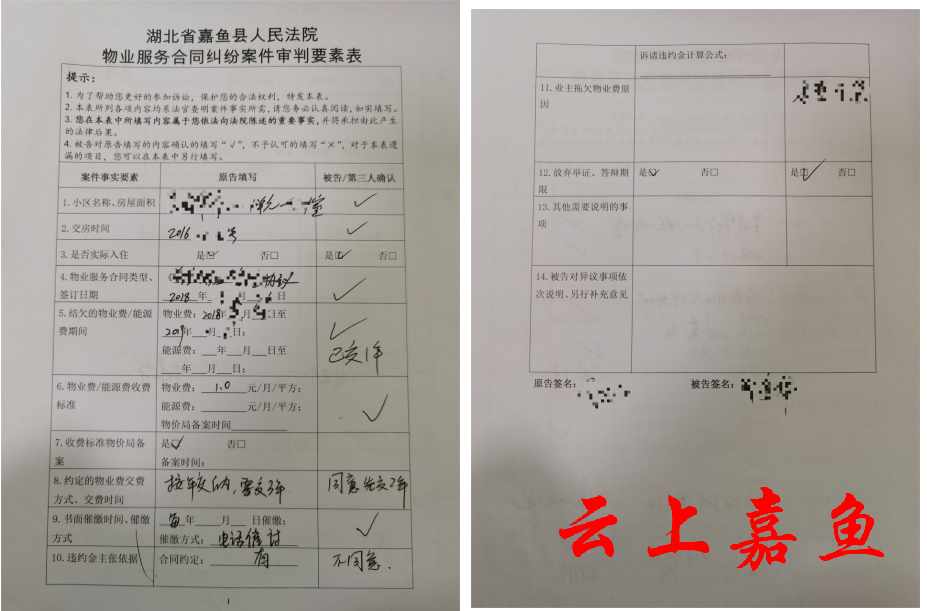 湖北省嘉鱼县人民法院
物业服务合同纠纷案件审判要素表
提示：
1. 为了帮助您更好的参加诉讼，保护您的合法权利，特发本表。
2. 本表所列各项内容均系法官查明案件事实所需，请您务必认真阅读，如实填写。
3. 您在本表中所填写内容属于您依法向法院陈述的重要事实，并将承担由此产生
的法律后果。
4. 被告对原告填写的内容确认的填写“√”，不予认可的填写“×”，对于本表遗
漏的项目，您可以在本表中另行填写。
案件事实要素 原告填写 被告/第三人确认
1. 小区名称、房屋面积 单元一 室 √
2. 交房时间 2016 号 √
3. 是否实际入住 是☑ 否□ 是☑ 否□
4. 物业服务合同类型、 协议
签订日期 2018 年 月 6 日 √
5. 结欠的物业费/能源 物业费：2018年 月 日至
费期间 2019年 月 日； √
能源费：___年___月___日至 已交1年
___年___月___日；
6. 物业费/能源费收费 物业费：1.0 元/月/平方；
标准 能源费：______元/月/平方； √
物价局备案时间________
7. 收费标准物价局备 是☑ 否□
案 备案时间：
8. 约定的物业费交费 按年交纳，需交3年 同意先交2年
方式、交费时间
9. 书面催缴时间、催缴 每 年___月___日催缴； √
方式 催缴方式：电话催讨
10. 违约金主张依据 合同约定：有 不同意.
1
诉请违约金计算公式：
11. 业主拖欠物业费原
因
12. 放弃举证、答辩期 是☑ 否□ 是☑ 否□
限
13. 其他需要说明的事
项
14. 被告对异议事项依
次说明、另行补充意见
原告签名： 被告签名：
云上嘉鱼